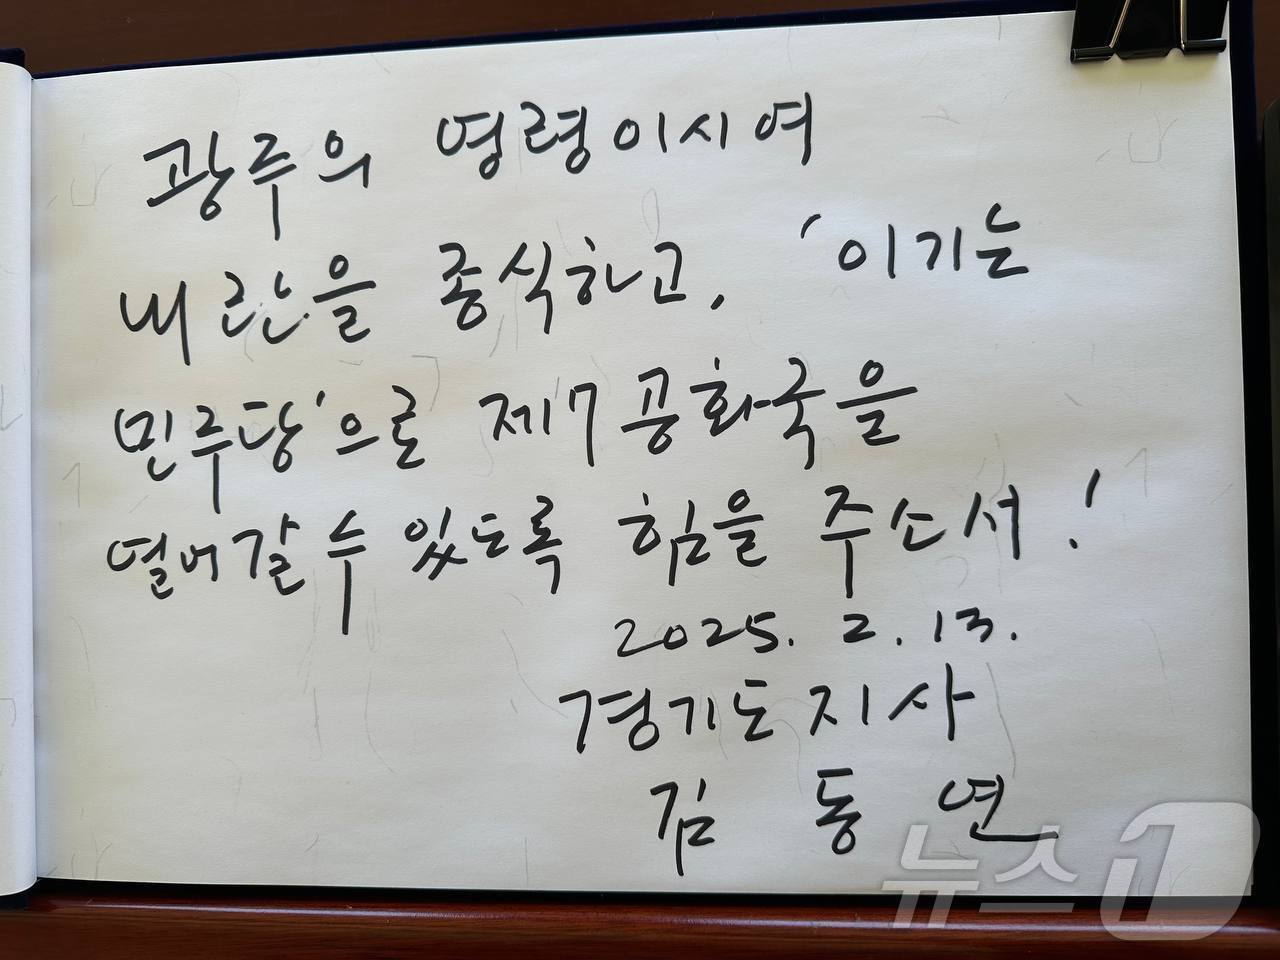 광주의 영령이시여
내란을 종식하고, '이기는
민주당'으로 제7공화국을
열어갈 수 있도록 힘을 주소서!
2025. 2. 13.
경기도지사
김동연
뉴스1